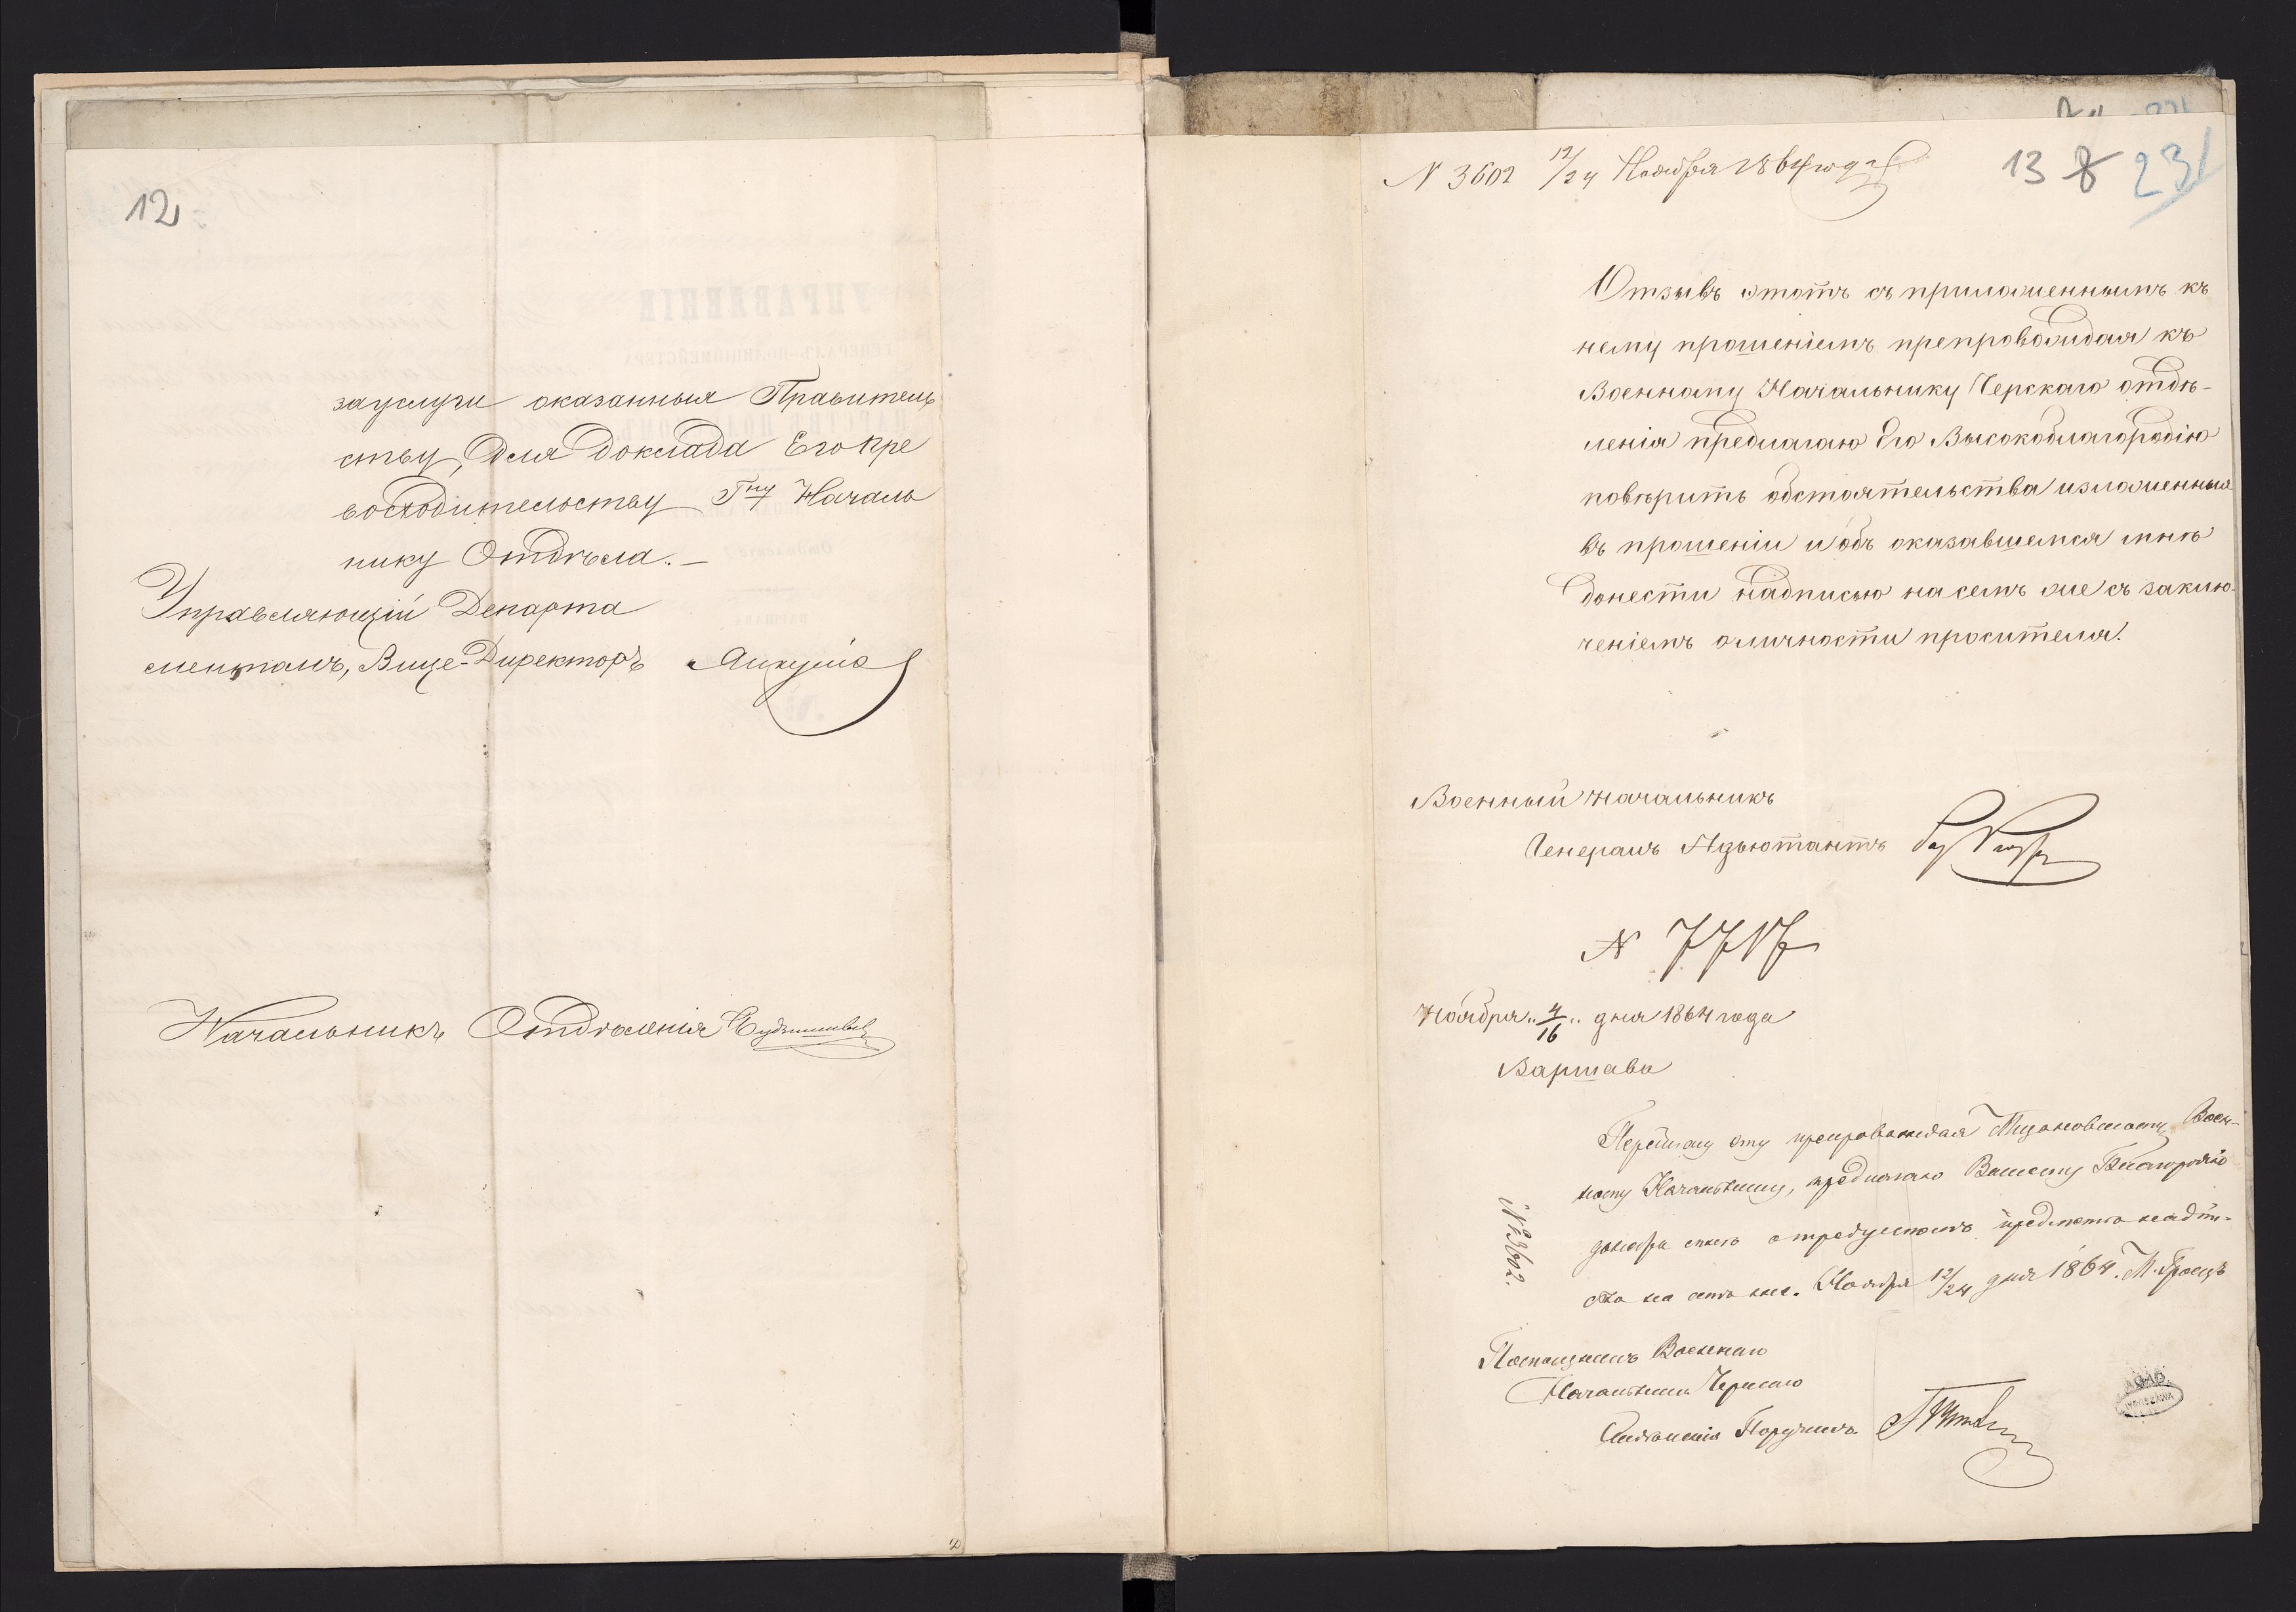 12
за услуги оказанныя Правитель
ству, для доклада Его Пре
восходительству Гну Началь
нику Отдѣла. —
Управляющій Департа
ментомъ, Вице-Директоръ
Начальникъ Отдѣленія
N 3602 12/24 Ноября 1864 года
13 8 23
Отзывъ этотъ съ приложеннымъ къ
нему прошеніемъ препровождая къ
Военному Начальнику Черскаго отдѣ-
ленія предлагаю Его Высокоблагородію
повѣрить обстоятельства изложенныя
въ прошеніи и объ оказавшемся мнѣ
донести надписью на семъ же съ заклю-
ченіемъ о личности просителя.
Военный Начальникъ
Генералъ Адъютантъ
N 7717
Ноября „4/16„ дня 1864 года
Варшава
Переписку эту препровождая Воен-
ному Начальнику, предлагаю Вашему Благородію
предмета надпи-
сью на семъ же. Ноября 12/24 дня 1864. М. Гроецъ
N 3602.
Помощникъ Военнаго
Начальника Черскаго
Отдѣленія Поручикъ
AGAD
WARSZAWA